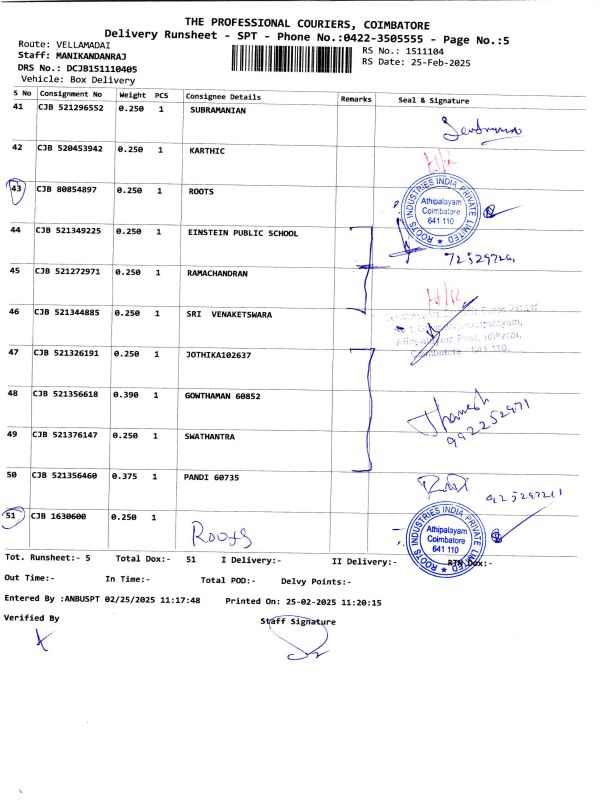 THE PROFESSIONAL COURIERS, COIMBATORE
Delivery Runsheet - SPT - Phone No.:0422-3505555 - Page No.:5
Route: VELLAMADAI
Staff: MANIKANDANRAJ
RS No.: 1511104
DRS No.: DCJB151110405
RS Date: 25-Feb-2025
Vehicle: Box Delivery
S No Consignment No Weight PCS Consignee Details Remarks Seal & Signature
41 CJB 521296552 0.250 1 SUBRAMANIAN
42 CJB 520453942 0.250 1 KARTHIC
43 CJB 80854897 0.250 1 ROOTS
ROOTS INDUSTRIES INDIA PRIVATE LIMITED
Athipalayam
Coimbatore
641 110
44 CJB 521349225 0.250 1 EINSTEIN PUBLIC SCHOOL
45 CJB 521272971 0.250 1 RAMACHANDRAN
46 CJB 521344885 0.250 1 SRI VENAKETSWARA
Coimbatore 641 110.
47 CJB 521326191 0.250 1 JOTHIKA102637
48 CJB 521356618 0.390 1 GOWTHAMAN 60852
49 CJB 521376147 0.250 1 SWATHANTRA
50 CJB 521356460 0.375 1 PANDI 60735
51 CJB 1630600 0.250 1 Roots
ROOTS INDUSTRIES INDIA PRIVATE LIMITED
Athipalayam
Coimbatore
641 110
Tot. Runsheet:- 5 Total Dox:- 51 I Delivery:- II Delivery:- RTN Dox:-
Out Time:- In Time:- Total POD:- Delvy Points:-
Entered By :ANBUSPT 02/25/2025 11:17:48 Printed On: 25-02-2025 11:20:15
Verified By Staff Signature